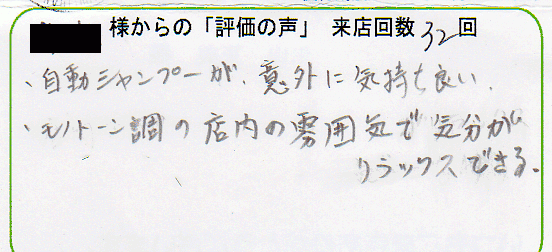 様からの「評価の声」 来店回数32回
・自動シャンプーが、意外に気持ち良い、
・モノトーン調の店内の雰囲気で気分が
リラックスできる。